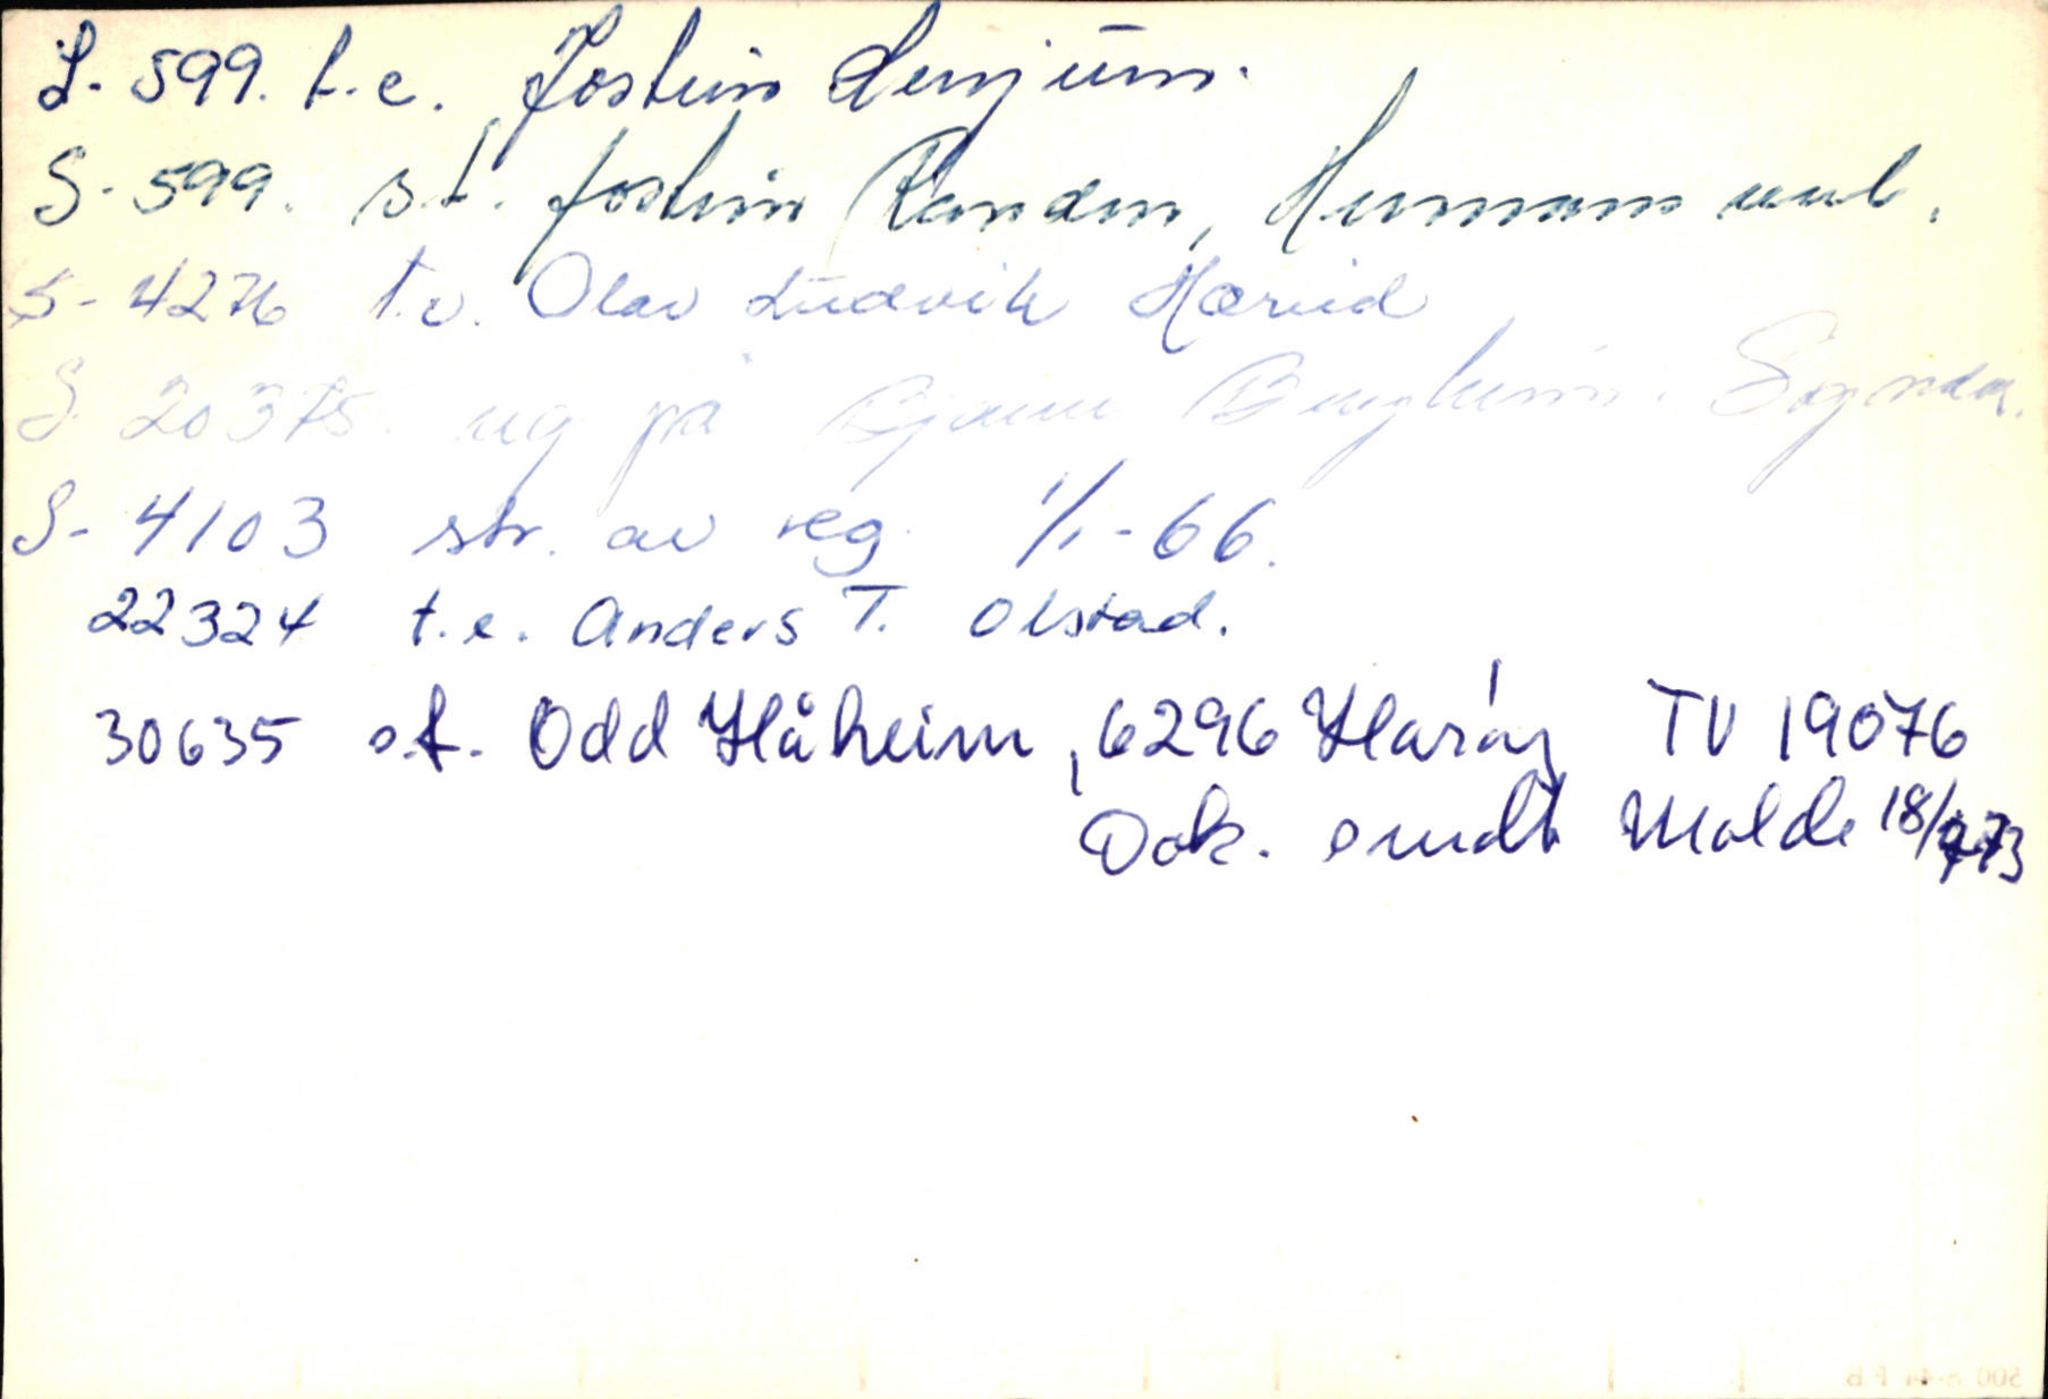 S-599. t.e. Jostein Lerjum.
S-599. s.f. Jostein Randen, Hermansverk.
S-4276 t.e. Olav Ludvik Hærvid
S 20375. reg på Bjarne Bergheim. Sogndal.
S-4103 str. av reg. 1/1-66.
22324 t.e. Anders T. Olstad.
30635 s.f. Odd Håheim, 6296 Harøy TV 19076
Dok. sendt Molde 18/9-73